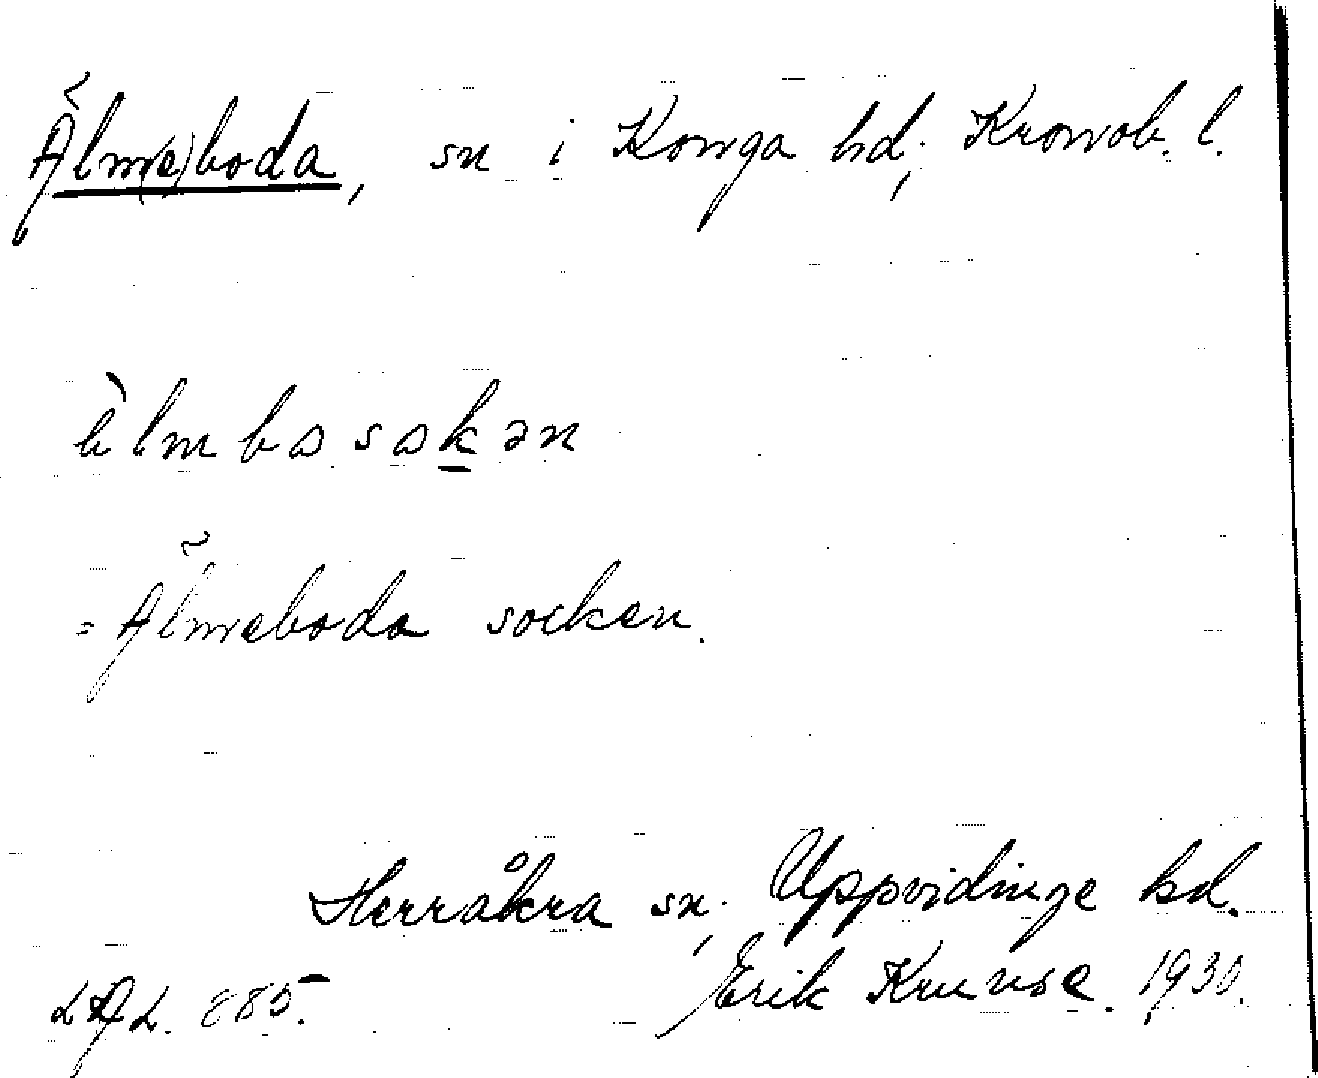 Älm(e)boda, sn i Konga hd., Kronob. l.
èlmbosokən
= Älmeboda socken.
Herråkra sn., Uppvidinge hd.
Erik Kruuse. 1930.
885.